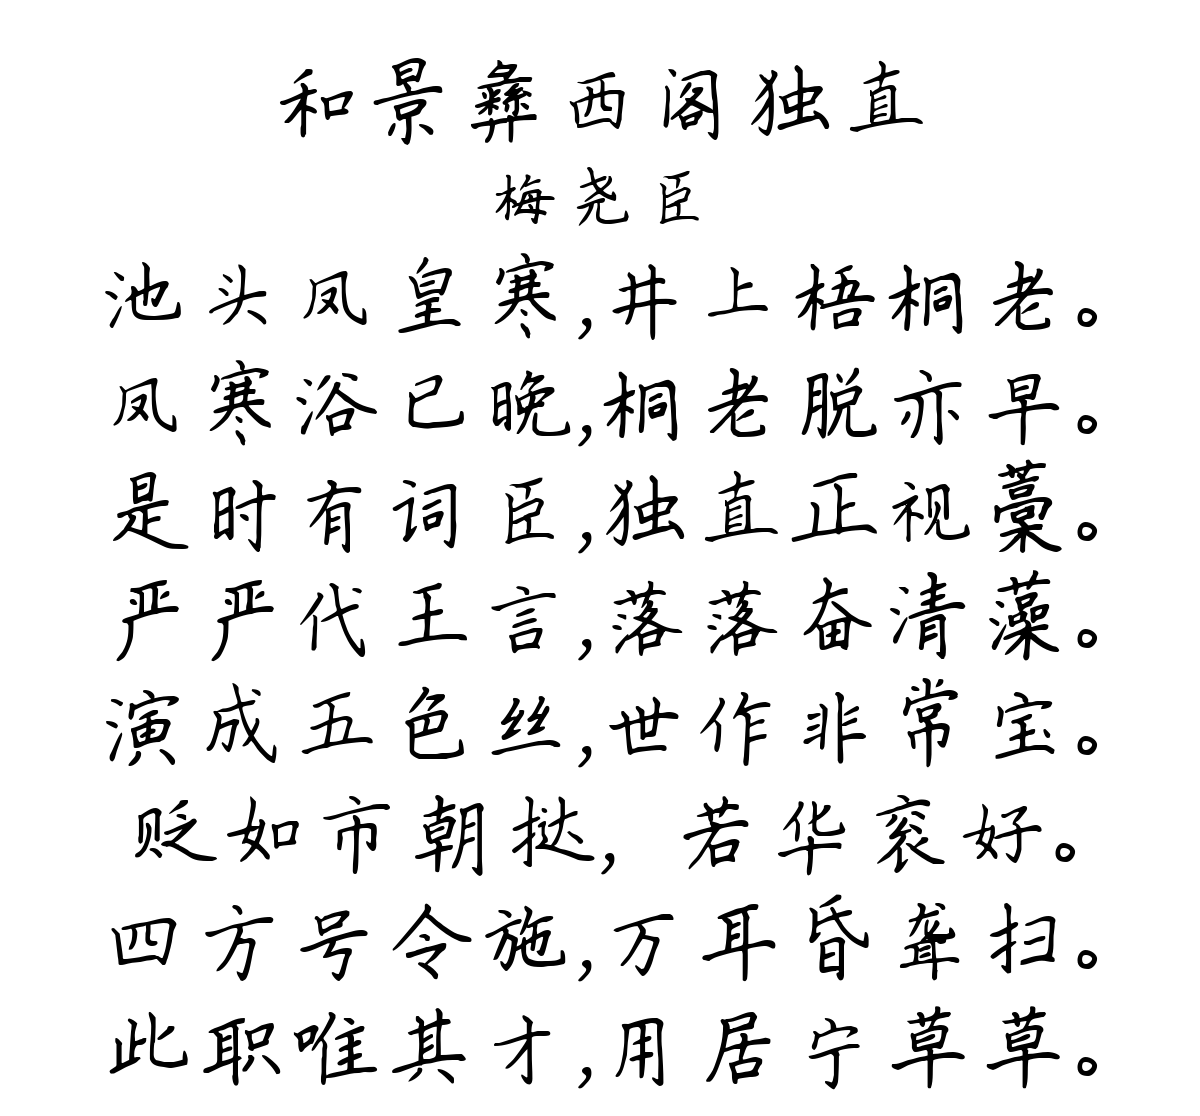 和景彝西阁独直
梅尧臣
池头凤皇寒,井上梧桐老。
凤寒浴已晚,桐老脱亦早。
是时有词臣,独直正视藁。
严严代王言,落落奋清藻。
演成五色丝,世作非常宝。
贬如市朝挞,若华衮好。
四方号令施,万耳昏聋扫。
此职唯其才,用居宁草草。